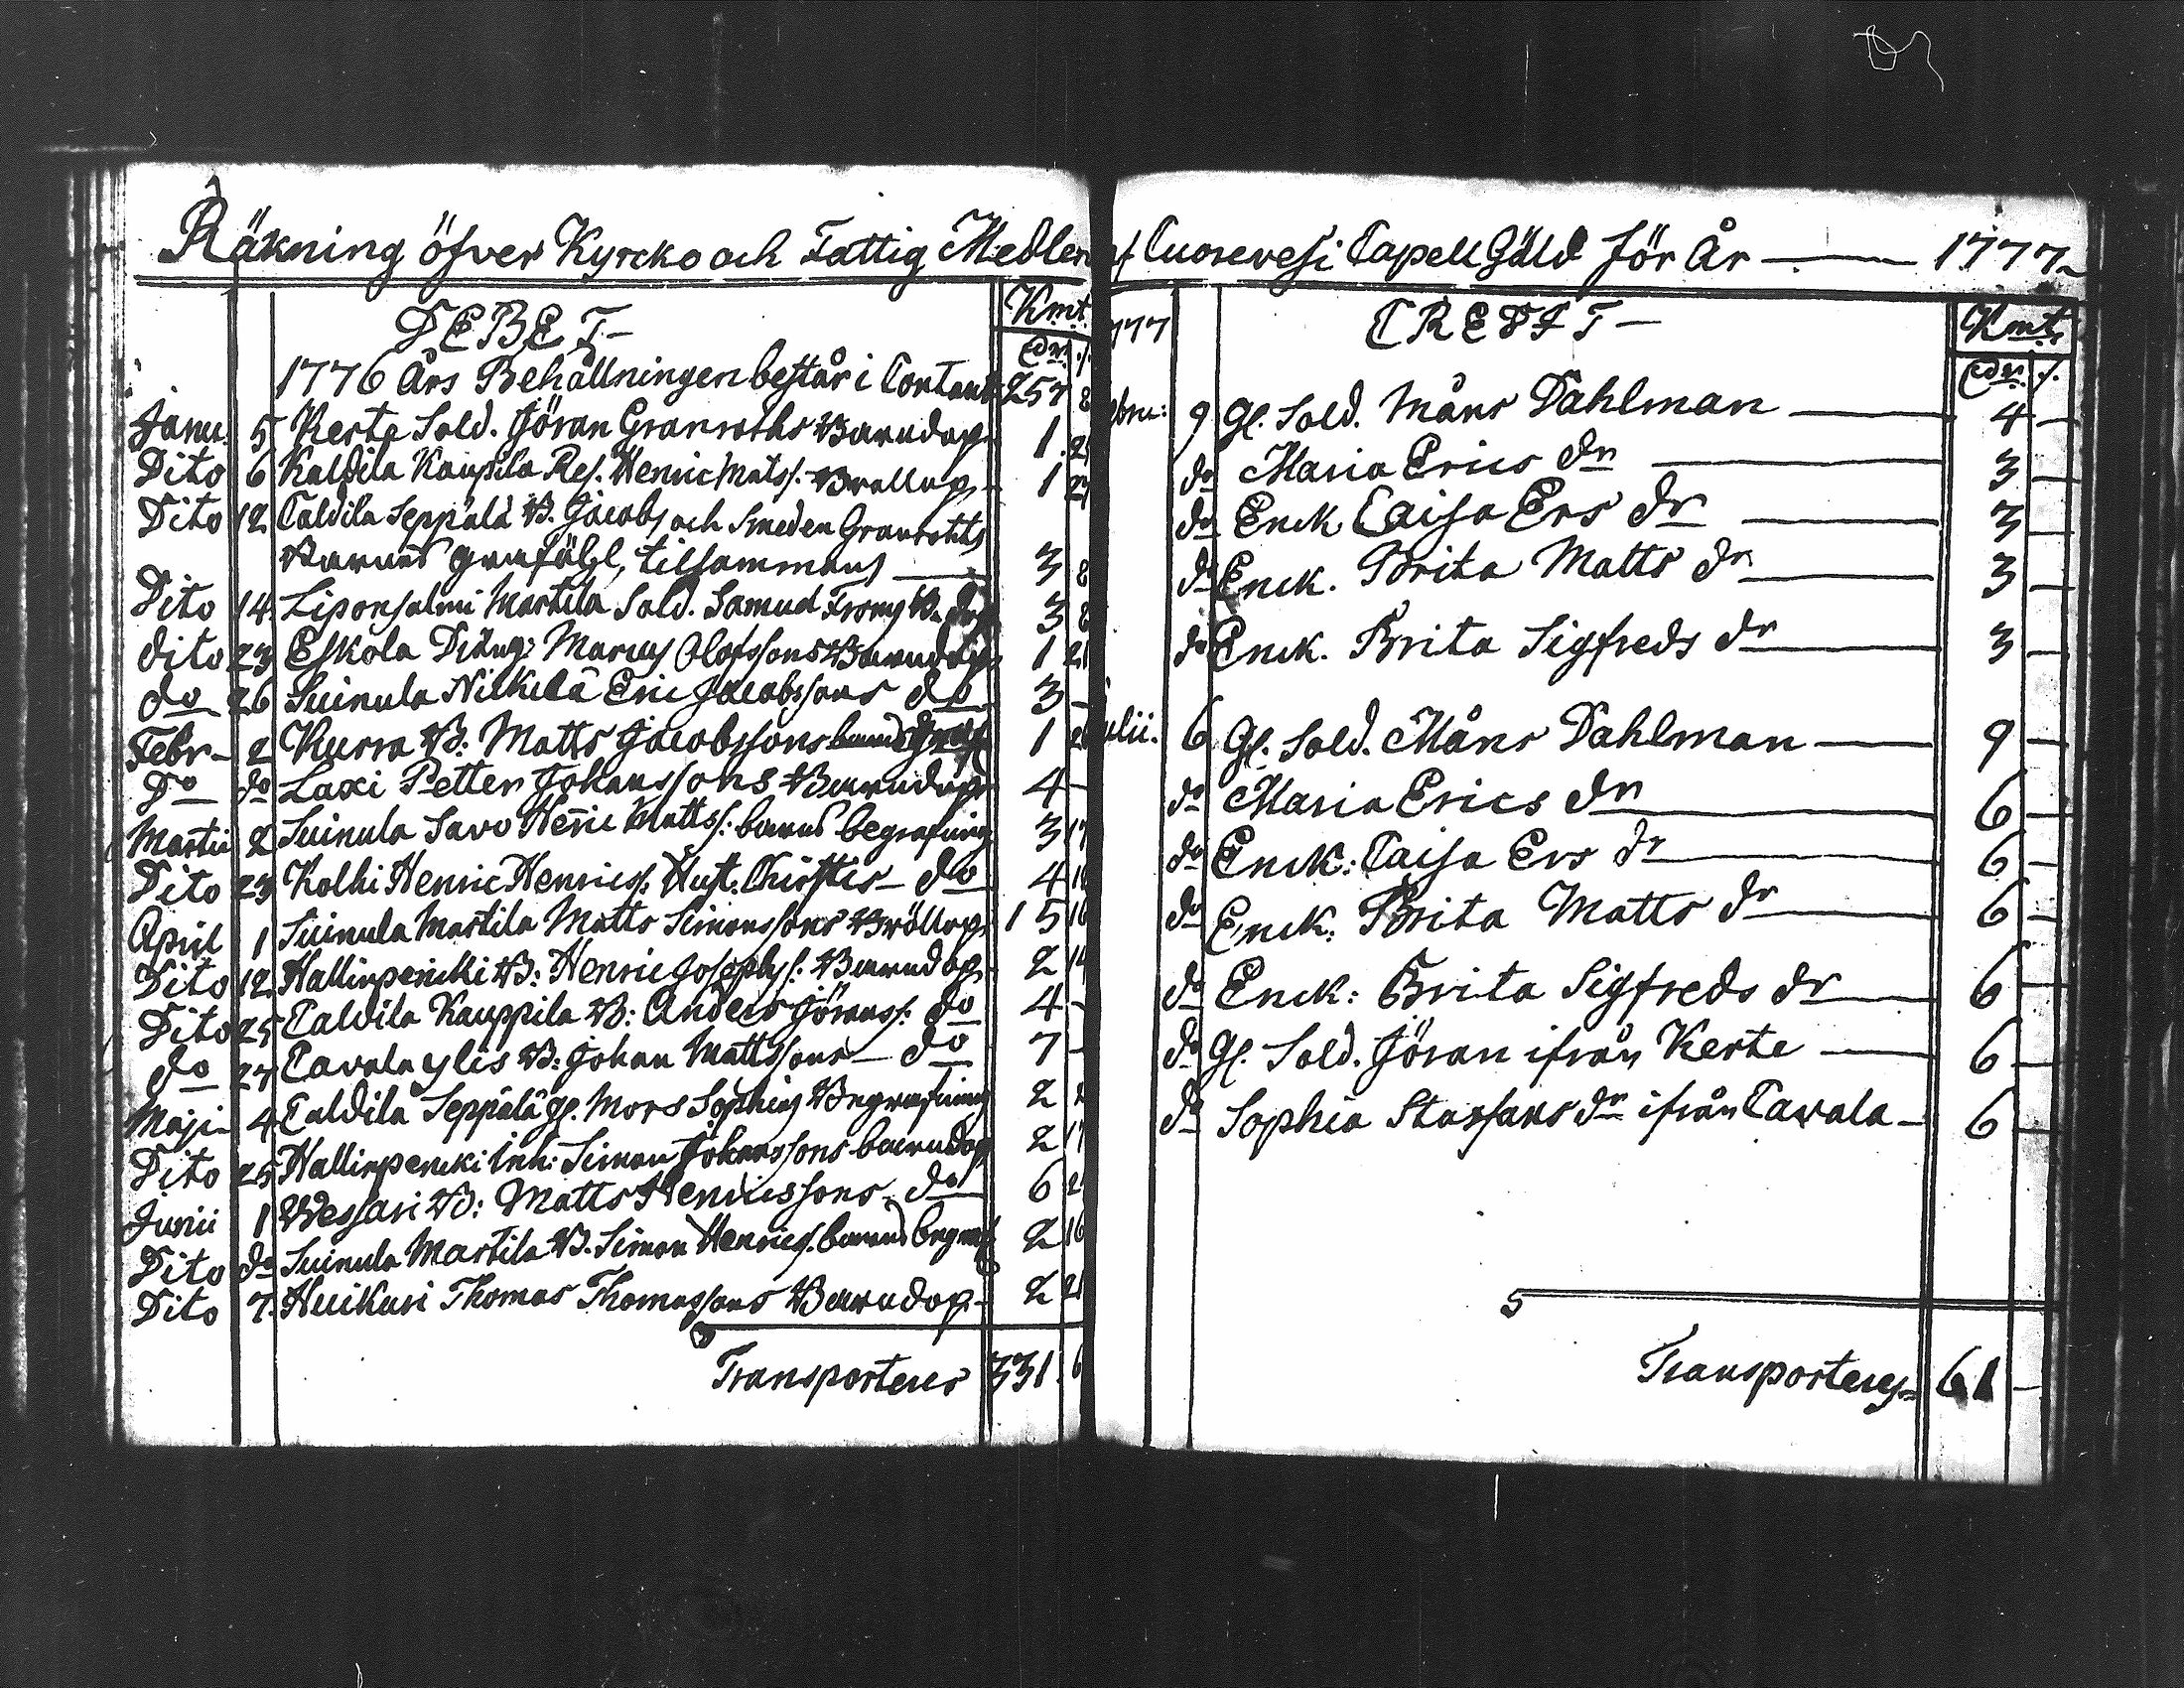 Räkning öfver Kyrcko och Fattig Medlen af Cuorevesi Capell Gäld för År — 1777
DEBET Kmt
Dr. /.
1776 Års Behållningen består i Contant 257 8
Janu. 5 Kerte Sold. Jöran Granroths Barndop 1. 21
Dito 6 Kaldila Kaupila Res. Henric Mats/. Bröllop 1 27
Dito 12 Caldila Seppälä B. Jacobs och Smeden Granroths
Barnes grafööl, tillsammans 3 8
Dito 14. Liponsalmi Martila Sold. Samuel Froms B. dop 3 8
dito 23 Eskola Marcus Olofssons Barndop 1 21
do 26 Suinula Nickilä Eric Jacobssons do 3 -
Febr- 2 Kurra B: Matts Jacobssons barns Graf 1 21
Do do Laxi Petter Johanssons Barndop 4 -
Martii 2 Suinula Savo Henric Matts/: barns begrafning 3 17
Dito 23 Kolhi Henric Henrics/: Hust. Christis - do 4 18
April 1 Suinula Martila Matts Simonssons Bröllop 15 16
Dito 12. Hallinpencki B: Henric Josephs/: Barndop 2 14
Dito 25 Caldila Kauppila B: Anders Jörans/: do 4 -
do 27 Cavala ylis B: Johan Mattssons - do 7 -
Maji- 4 Caldila Seppälä gl. Mors Sophias Begrafning 2 2
Dito 25 Hallinpencki Inh: Simon Johanssons barndop 2 17
Junii 1 Wessari B: Matts Henricssons do 6 2
Dito do Suinula Martila B. Simon Henrics/. barns begraf 2 16
Dito 7. Huikuri Thomas Thomassons Barndop- 2 21
Transporteres 331. 6
777 CREDIT — Kmt.
Dr. /.
ebru: 9 Gl. Sold. Måns Dahlman — 4 —
do Maria Erics dr — 3 —
do Enck Caisa Ers dr — 3 —
do Enck. Brita Matts dr — 3 —
do Enck. Brita Sigfreds dr — 3 —
ulii. 6 Gl. Sold. Måns Dahlman — 9 —
do Maria Erics dr — 6 —
do Enck: Caisa Ers dr — 6 —
do Enck: Brita Matts dr — 6 —
do Enck: Brita Sigfreds dr — 6 —
do Gl. Sold. Jöran ifrån Kerte — 6 —
do Sophia Staffans dr ifrån Cavala - 6 —
Transporteres 61 —